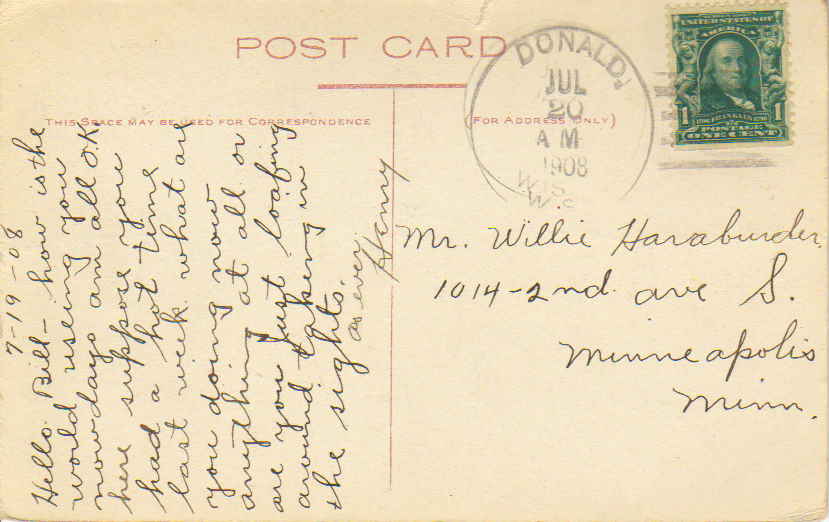 POST CARD
THIS SPACE MAY BE USED FOR CORRESPONDENCE
(FOR ADDRESS ONLY)
DONALD,
JUL
20
A M
1908
WIS.
UNITED STATES OF
AMERICA
1 1
POSTAGE
ONE CENT
7-19-08
Hello Bill - how is the
world useing you
nowdays am all O.K.
here suppose you
had a hot time
last week what are
you doing now
anything at all or
are you just loafing
around takeing in
the sights.
as ever
Henry
Mr. Willie Haraburder
1014-2nd. ave S.
Minneapolis
Minn.